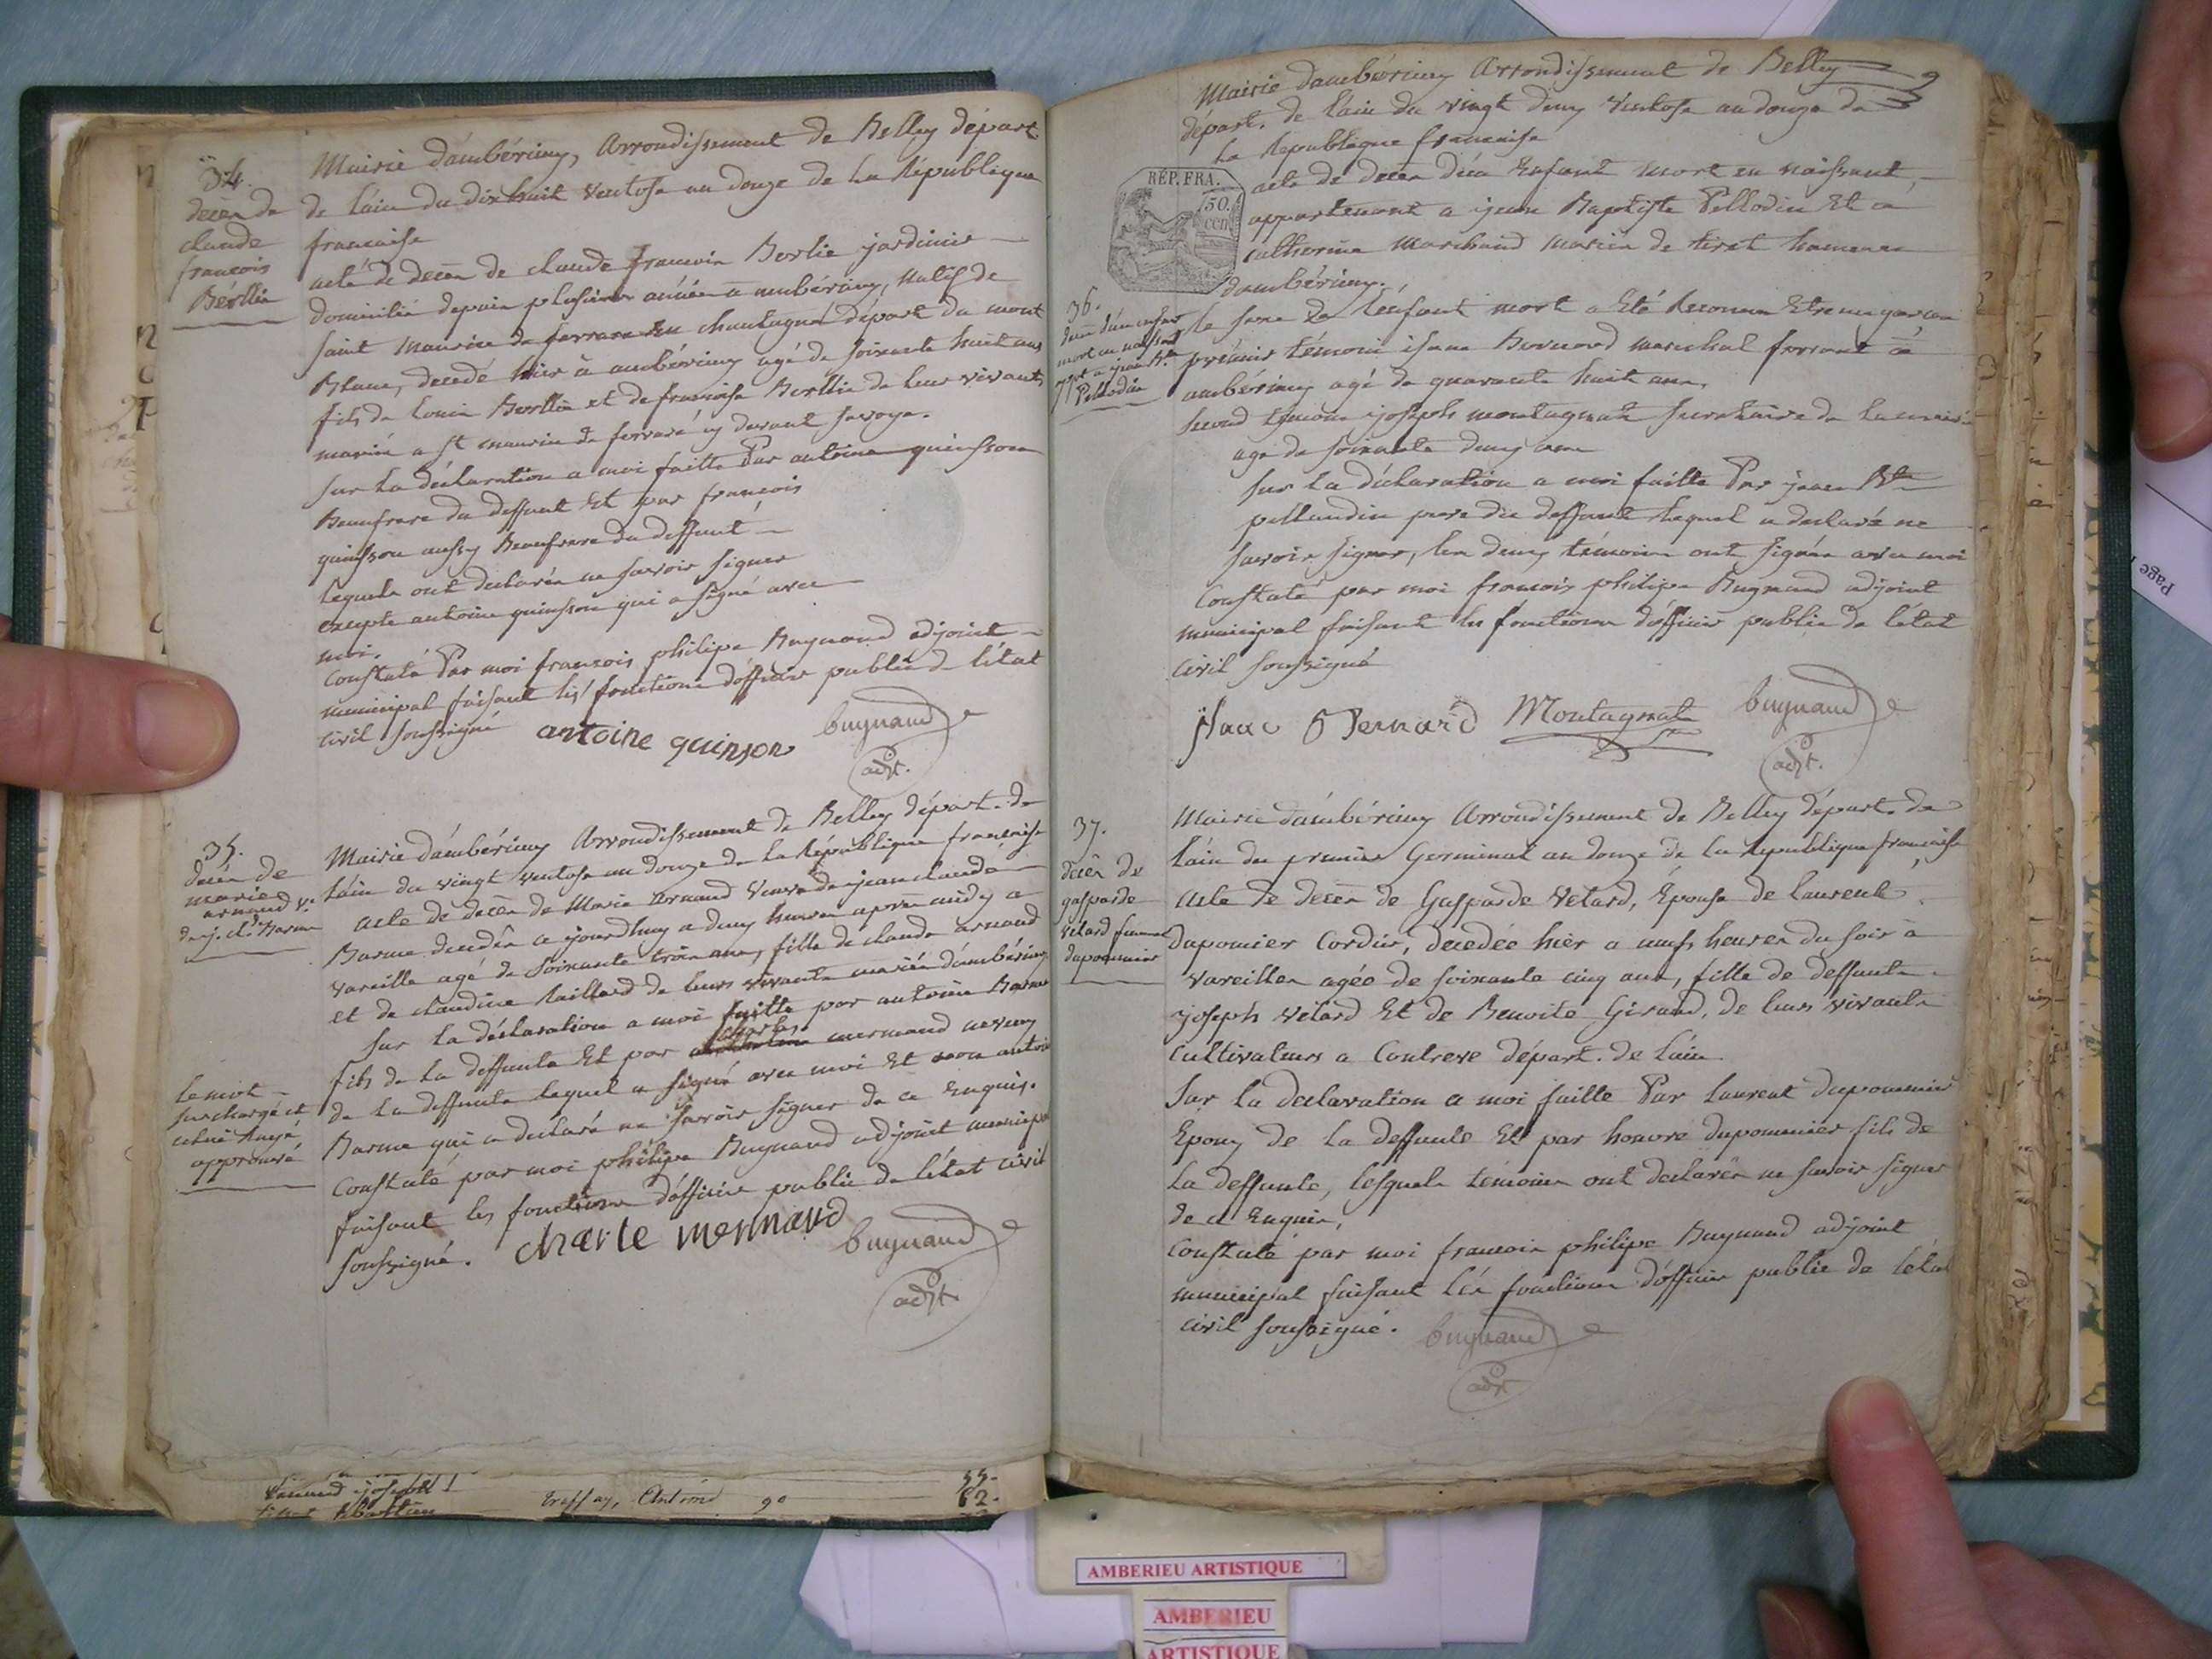 34.
décès de
claude
françois
Berllie
Mairie d'ambérieux, Arrondissement de Belley départ.
de l'ain du dixhuit ventose an douze de la République
francaise
acte de décès de claude francois Berlie jardinier
domicilié depuis plusieurs années a ambérieux, natif de
saint maurice de ferrare en chautagne départ. du mont
Blanc, décédé hier à ambérieux agé de soixante huit ans
fils de Louis Berllie et de francoise Berllie de leur vivants
mariés a st maurice de ferrare cy devant savoye.
sur la déclaration a moi faitte Par antoine quinsson
Beaufrere du deffunt Et par francois
quinsson aussy Beaufrere du deffunt
lequels ont declarés ne savoir signer
excepte antoine quinsson qui a signé avec
moi.
Constaté Par moi francois philipe Bugnand adjoint
municipal faisant les fonctions d'officier public de l'état
civil soussigné
antoine quinson
bugnand
adjt.
35.
décès de
marie
arnaud ve.
de j. cl. Barme
Mairie d'ambérieux Arrondissement de Belley départ. de
l'ain du vingt ventose an douze de la République francaise
acte de décès de Marie arnaud veuve de jean claude
Barme décédée ce jourdhuy a deux heures apres midy a
vareille agé de soixante trois ans, fille de claude arnaud
et de claudine Raillard de leurs vivants mariés d'ambérieux
sur la déclaration a moi faitte par antoine Barme
fils de la deffunte Et par charles mermand neveux
de la deffunte lequel a signé avec moi Et non antoine
Barme qui a declaré ne savoir signer de ce Enquis.
Constaté par moi philipe Bugnand adjoint municipal
faisant les fonctions d'officier public de l'état civil
soussigné.
le mot
surchargé et
celui Rayé
approuvé
charle mermand
bugnand
adjt.
55.
62.
Antoine 90
Mairie d'ambérieux Arrondissement de Belley
départ. de l'ain du vingt deux ventose an douze de
la République francaise
RÉP. FRA.
50.
cen.
acte de décès d'un Enfant mort en naissant,
appartenant a jean Baptiste Pellodin Et a
catherine Marchand mariés de tiret hameau
d'ambérieux.
36.
décès d'un enfant
mort en naissant
appt. a jean Bte
Pellodin
le sexe de l'enfant mort a Eté Reconnu Etre un garcon
premier témoin isaac Bernard marechal ferrant à
ambérieux agé de quarante huit ans,
second témoin joseph montagnat secretaire de la mairie
age de soixante deux ans
sur la déclaration a moi faitte Par jean Bte
pellaudin pere du deffunt lequel a declaré ne
savoir signer, les deux témoins ont signés avec moi
Constaté par moi francois philipe Bugnand adjoint
municipal faisant les fonctions d'officier public de l'état
civil soussigné
jsaac Bernard
Montagnat
bugnand
adjt.
37.
décès de
gasparde
vétard femme
dupommier
Mairie d'ambérieux Arrondissement de Belley départ. de
l'ain du premier Germinal an douze de la République francaise
Acte de décès de Gasparde Vétard, Épouse de Laurent
dupomier Cordier, decedée hier a neufs heures du soir à
vareilles agée de soixante cinq ans, fille de deffunts
joseph vétard Et de Benoite Giraud, de leurs vivants
cultivateurs a Contreve départ. de l'ain.
Sur la declaration a moi faitte Par Laurent dupommier
Epoux de la deffunte Et par honoré dupommier fils de
la deffunte, lesquels témoins ont declarés ne savoir signer
de ce Enquis,
Constaté par moi francois philipe Bugnand adjoint
municipal faisant les fonctions d'officier public de l'état
civil soussigné.
bugnand
adjt
Page
AMBERIEU ARTISTIQUE
AMBERIEU
ARTISTIQUE